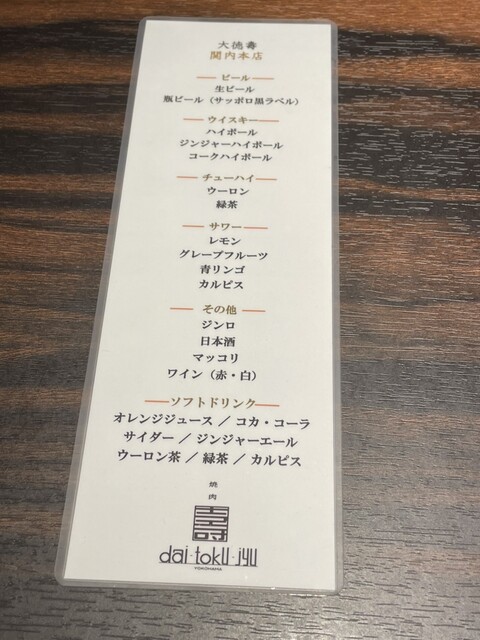 大徳壽
関内本店
ビール
生ビール
瓶ビール（サッポロ黒ラベル）
ウイスキー
ハイボール
ジンジャーハイボール
コークハイボール
チューハイ
ウーロン
緑茶
サワー
レモン
グレープフルーツ
青リンゴ
カルピス
その他
ジンロ
日本酒
マッコリ
ワイン（赤・白）
ソフトドリンク
オレンジジュース ／ コカ・コーラ
サイダー ／ ジンジャーエール
ウーロン茶 ／ 緑茶 ／ カルピス
焼肉
壽
dai-toku-jyu
YOKOHAMA